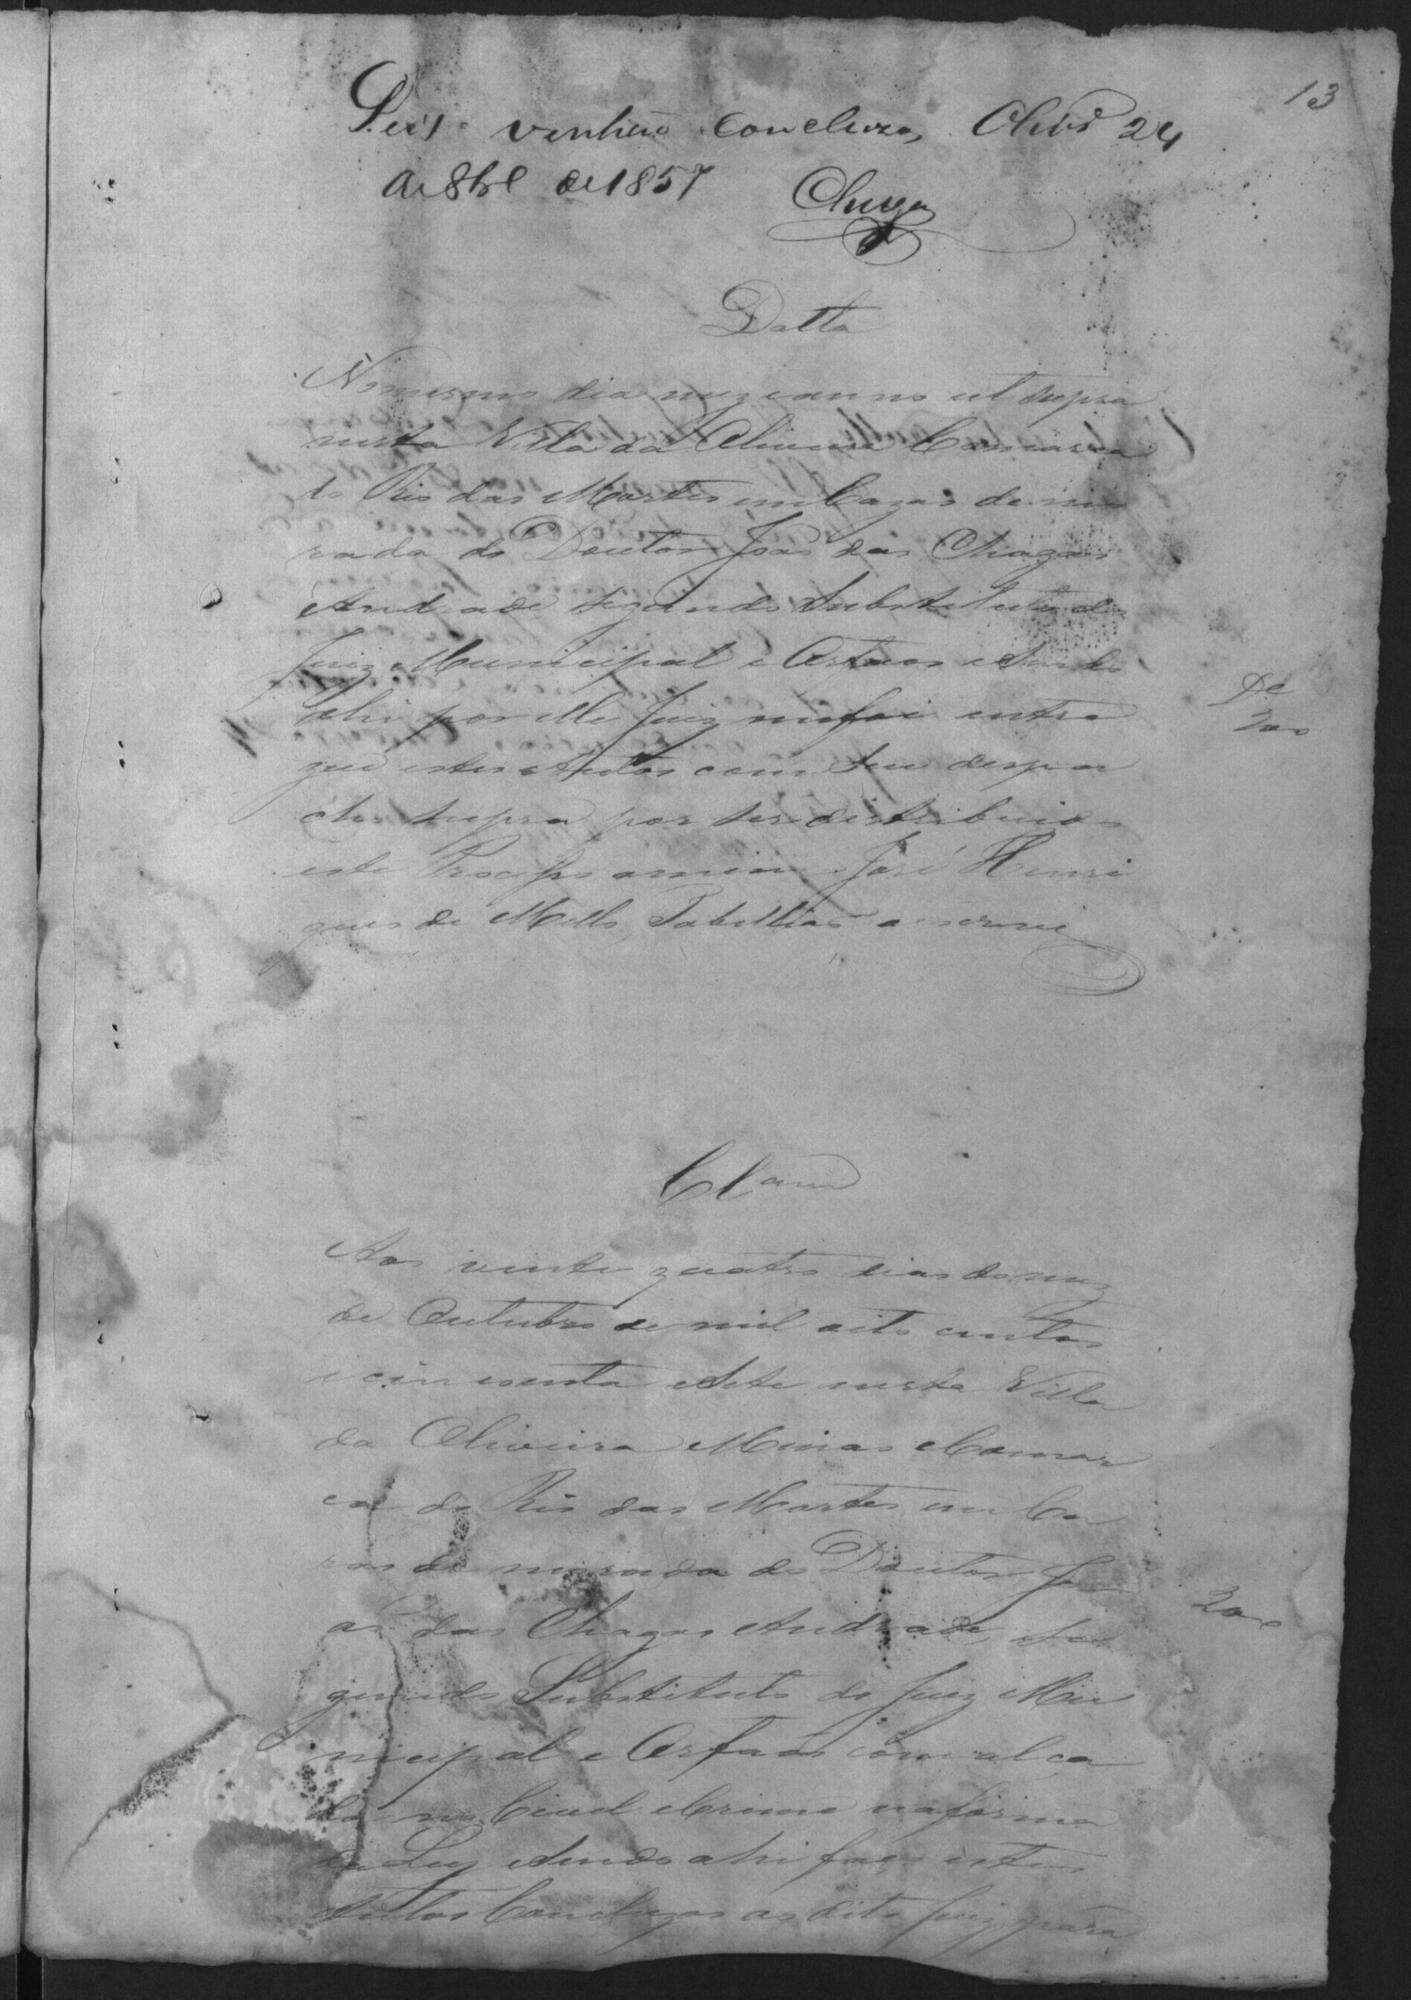 13
venhão concluzos, Olivrª 24
de 8brº de 1857
Chagas
Datta
No mesmo dia mez e anno ut supra
nesta Villa da Oliveira Comarca
do Rio das Mortes em Cazas de mo
rada do Doutor João das Chagas
Andrade segundo Substituto do
Juiz Municipal e Orfaos e sendo
ahi por elle Juiz me foi entre
gue estes autos com seu despa
cho supra por ser distribuido
este Processo a mim José Henri
ques de Mello, Tabellião a escrevi
De
200
Clam
Aos vinte quatro dias do mez
de Outubro de mil oito centos
e cincoenta e sete nesta Villa
da Oliveira Minas e Comar
ca do Rio das Mortes em Ca
zas de morada do Doutor Jo
ão das Chagas Andrade, se
gundo Substituto do Juiz Mu
nicipal e Orfaos com alca
da no Civel e Crime na forma
da Ley e sendo ahi faço estes
autos Concluzos ao dito Juiz, para
200